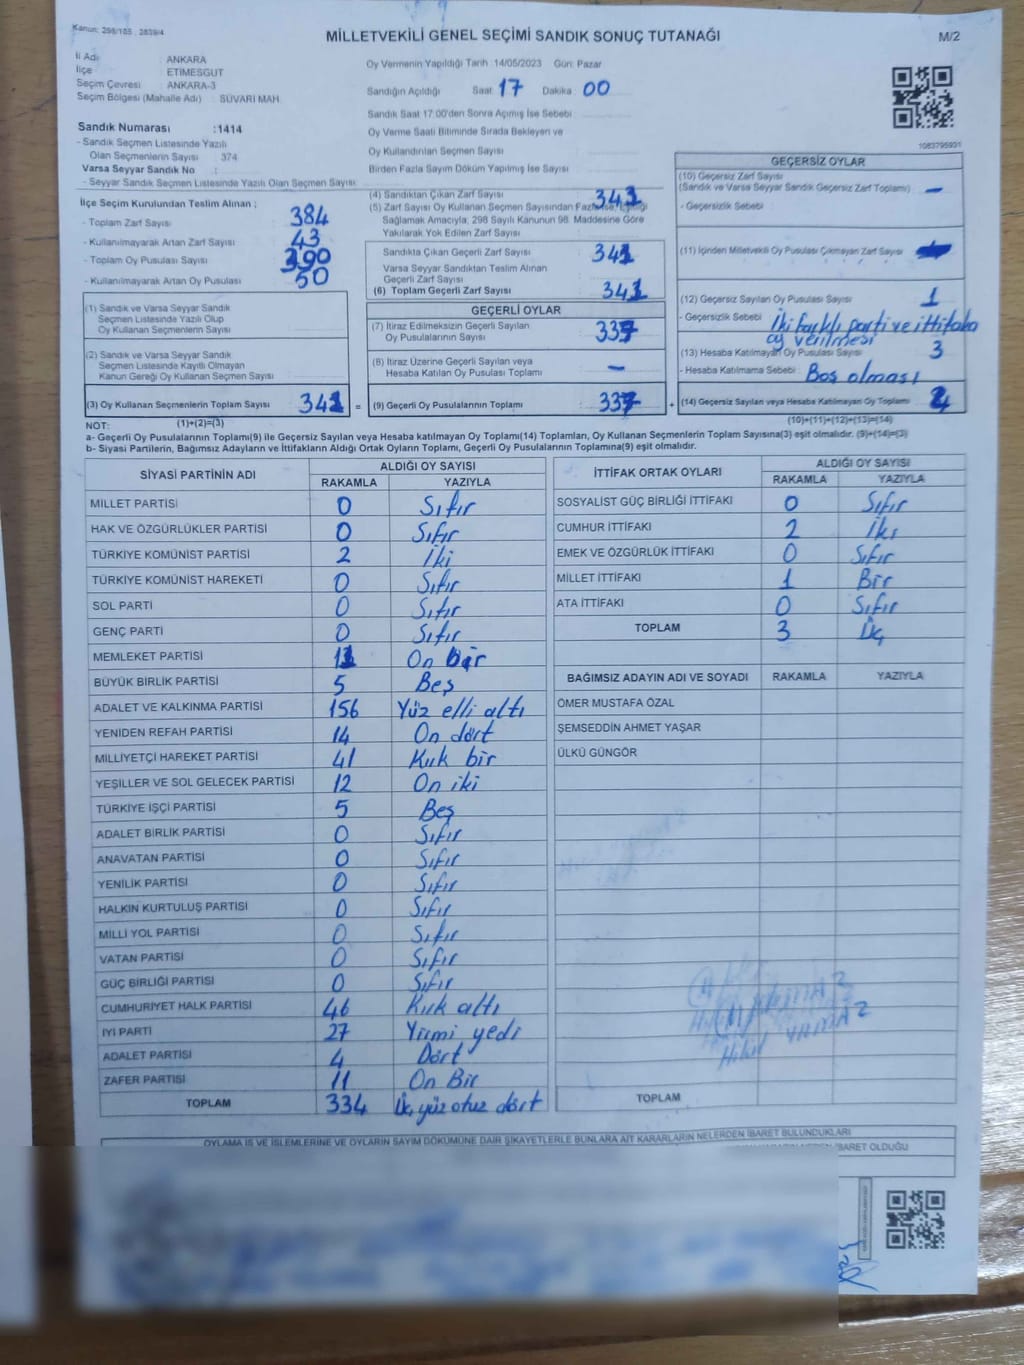 Kanun: 298/105 , 2839/4
MİLLETVEKİLİ GENEL SEÇİMİ SANDIK SONUÇ TUTANAĞI
M/2
İl Adı : ANKARA
İlçe : ETİMESGUT
Seçim Çevresi : ANKARA-3
Seçim Bölgesi (Mahalle Adı) : SÜVARİ MAH.
Oy Vermenin Yapıldığı Tarih :14/05/2023 Gün: Pazar
Sandığın Açıldığı Saat 17 Dakika 00
Sandık Saat 17.00'den Sonra Açılmış İse Sebebi
Oy Verme Saati Bitiminde Sırada Bekleyen ve
Oy Kullandırılan Seçmen Sayısı
Birden Fazla Sayım Döküm Yapılmış İse Sayısı
Sandık Numarası :1414
- Sandık Seçmen Listesinde Yazılı
Olan Seçmenlerin Sayısı : 374
Varsa Seyyar Sandık No :
- Seyyar Sandık Seçmen Listesinde Yazılı Olan Seçmen Sayısı :
1083795931
İlçe Seçim Kurulundan Teslim Alınan ;
- Toplam Zarf Sayısı : 384
- Kullanılmayarak Artan Zarf Sayısı : 43
- Toplam Oy Pusulası Sayısı : 390
- Kullanılmayarak Artan Oy Pusulası : 50
(1) Sandık ve Varsa Seyyar Sandık
Seçmen Listesinde Yazılı Olup
Oy Kullanan Seçmenlerin Sayısı :
(2) Sandık ve Varsa Seyyar Sandık
Seçmen Listesinde Kayıtlı Olmayan
Kanun Gereği Oy Kullanan Seçmen Sayısı :
(3) Oy Kullanan Seçmenlerin Toplam Sayısı 341 =
(1)+(2)=(3)
(4) Sandıktan Çıkan Zarf Sayısı : 341
(5) Zarf Sayısı Oy Kullanan Seçmen Sayısından Fazla İse, Eşitliği
Sağlamak Amacıyla, 298 Sayılı Kanunun 98. Maddesine Göre
Yakılarak Yok Edilen Zarf Sayısı :
Sandıkta Çıkan Geçerli Zarf Sayısı : 341
Varsa Seyyar Sandıktan Teslim Alınan
Geçerli Zarf Sayısı :
(6) Toplam Geçerli Zarf Sayısı : 341
GEÇERLİ OYLAR
(7) İtiraz Edilmeksizin Geçerli Sayılan
Oy Pusulalarının Sayısı : 337
(8) İtiraz Üzerine Geçerli Sayılan veya
Hesaba Katılan Oy Pusulası Toplamı : -
(9) Geçerli Oy Pusulalarının Toplamı : 337 +
GEÇERSİZ OYLAR
(10) Geçersiz Zarf Sayısı
(Sandık ve Varsa Seyyar Sandık Geçersiz Zarf Toplamı) : -
- Geçersizlik Sebebi :
(11) İçinden Milletvekili Oy Pusulası Çıkmayan Zarf Sayısı :
(12) Geçersiz Sayılan Oy Pusulası Sayısı : 1
- Geçersizlik Sebebi : İki farklı parti ve ittifaka
oy verilmesi
(13) Hesaba Katılmayan Oy Pusulası Sayısı : 3
- Hesaba Katılmama Sebebi : Boş olması
(14) Geçersiz Sayılan veya Hesaba Katılmayan Oy Toplamı :
(10)+(11)+(12)+(13)=(14)
NOT:
a- Geçerli Oy Pusulalarının Toplamı(9) ile Geçersiz Sayılan veya Hesaba katılmayan Oy Toplamı(14) Toplamları, Oy Kullanan Seçmenlerin Toplam Sayısına(3) eşit olmalıdır. (9)+(14)=(3)
b- Siyasi Partilerin, Bağımsız Adayların ve İttifakların Aldığı Ortak Oyların Toplamı, Geçerli Oy Pusulalarının Toplamına(9) eşit olmalıdır.
SİYASİ PARTİNİN ADI ALDIĞI OY SAYISI
RAKAMLA YAZIYLA
MİLLET PARTİSİ 0 Sıfır
HAK VE ÖZGÜRLÜKLER PARTİSİ 0 Sıfır
TÜRKİYE KOMÜNİST PARTİSİ 2 İki
TÜRKİYE KOMÜNİST HAREKETİ 0 Sıfır
SOL PARTİ 0 Sıfır
GENÇ PARTİ 0 Sıfır
MEMLEKET PARTİSİ 11 On bir
BÜYÜK BİRLİK PARTİSİ 5 Beş
ADALET VE KALKINMA PARTİSİ 156 Yüz elli altı
YENİDEN REFAH PARTİSİ 14 On dört
MİLLİYETÇİ HAREKET PARTİSİ 41 Kırk bir
YEŞİLLER VE SOL GELECEK PARTİSİ 12 On iki
TÜRKİYE İŞÇİ PARTİSİ 5 Beş
ADALET BİRLİK PARTİSİ 0 Sıfır
ANAVATAN PARTİSİ 0 Sıfır
YENİLİK PARTİSİ 0 Sıfır
HALKIN KURTULUŞ PARTİSİ 0 Sıfır
MİLLİ YOL PARTİSİ 0 Sıfır
VATAN PARTİSİ 0 Sıfır
GÜÇ BİRLİĞİ PARTİSİ 0 Sıfır
CUMHURİYET HALK PARTİSİ 46 Kırk altı
İYİ PARTİ 27 Yirmi yedi
ADALET PARTİSİ 4 Dört
ZAFER PARTİSİ 11 On Bir
TOPLAM 334 Üç yüz otuz dört
İTTİFAK ORTAK OYLARI ALDIĞI OY SAYISI
RAKAMLA YAZIYLA
SOSYALİST GÜÇ BİRLİĞİ İTTİFAKI 0 Sıfır
CUMHUR İTTİFAKI 2 İki
EMEK VE ÖZGÜRLÜK İTTİFAKI 0 Sıfır
MİLLET İTTİFAKI 1 Bir
ATA İTTİFAKI 0 Sıfır
TOPLAM 3 Üç
BAĞIMSIZ ADAYIN ADI VE SOYADI RAKAMLA YAZIYLA
ÖMER MUSTAFA ÖZAL
ŞEMSEDDİN AHMET YAŞAR
ÜLKÜ GÜNGÖR
TOPLAM
OYLAMA İŞ VE İŞLEMLERİNE VE OYLARIN SAYIM DÖKÜMÜNE DAİR ŞİKAYETLERLE BUNLARA AİT KARARLARIN NELERDEN İBARET BULUNDUKLARI
İBARET OLDUĞU